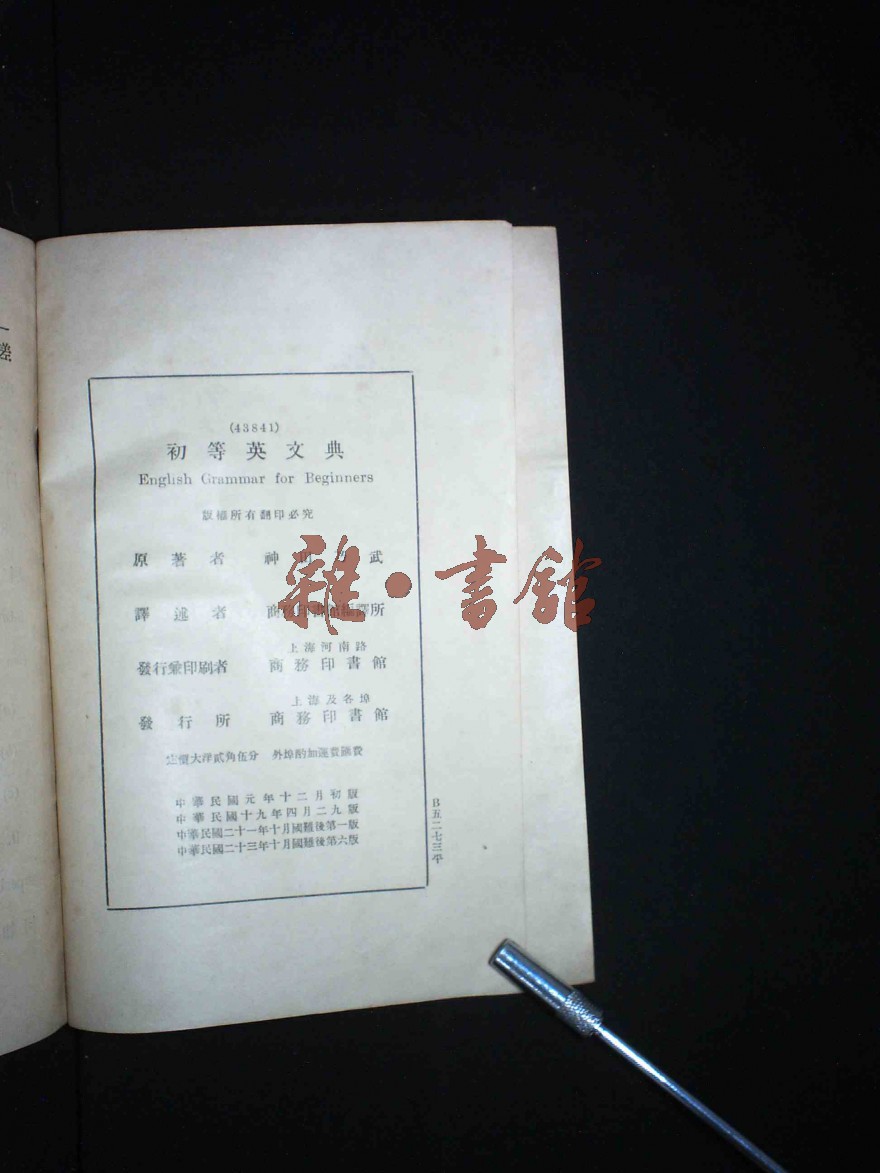 差
(43841)
初等英文典
English Grammar for Beginners
版權所有翻印必究
原著者 神田乃武
譯述者 商務印書館編譯所
上海河南路
發行兼印刷者 商務印書館
上海及各埠
發行所 商務印書館
定價大洋貳角伍分 外埠酌加運費匯費
中華民國元年十二月初版
中華民國十九年四月二九版
中華民國二十一年十月國難後第一版
中華民國二十三年十月國難後第六版
B五二七三平
雜·書館